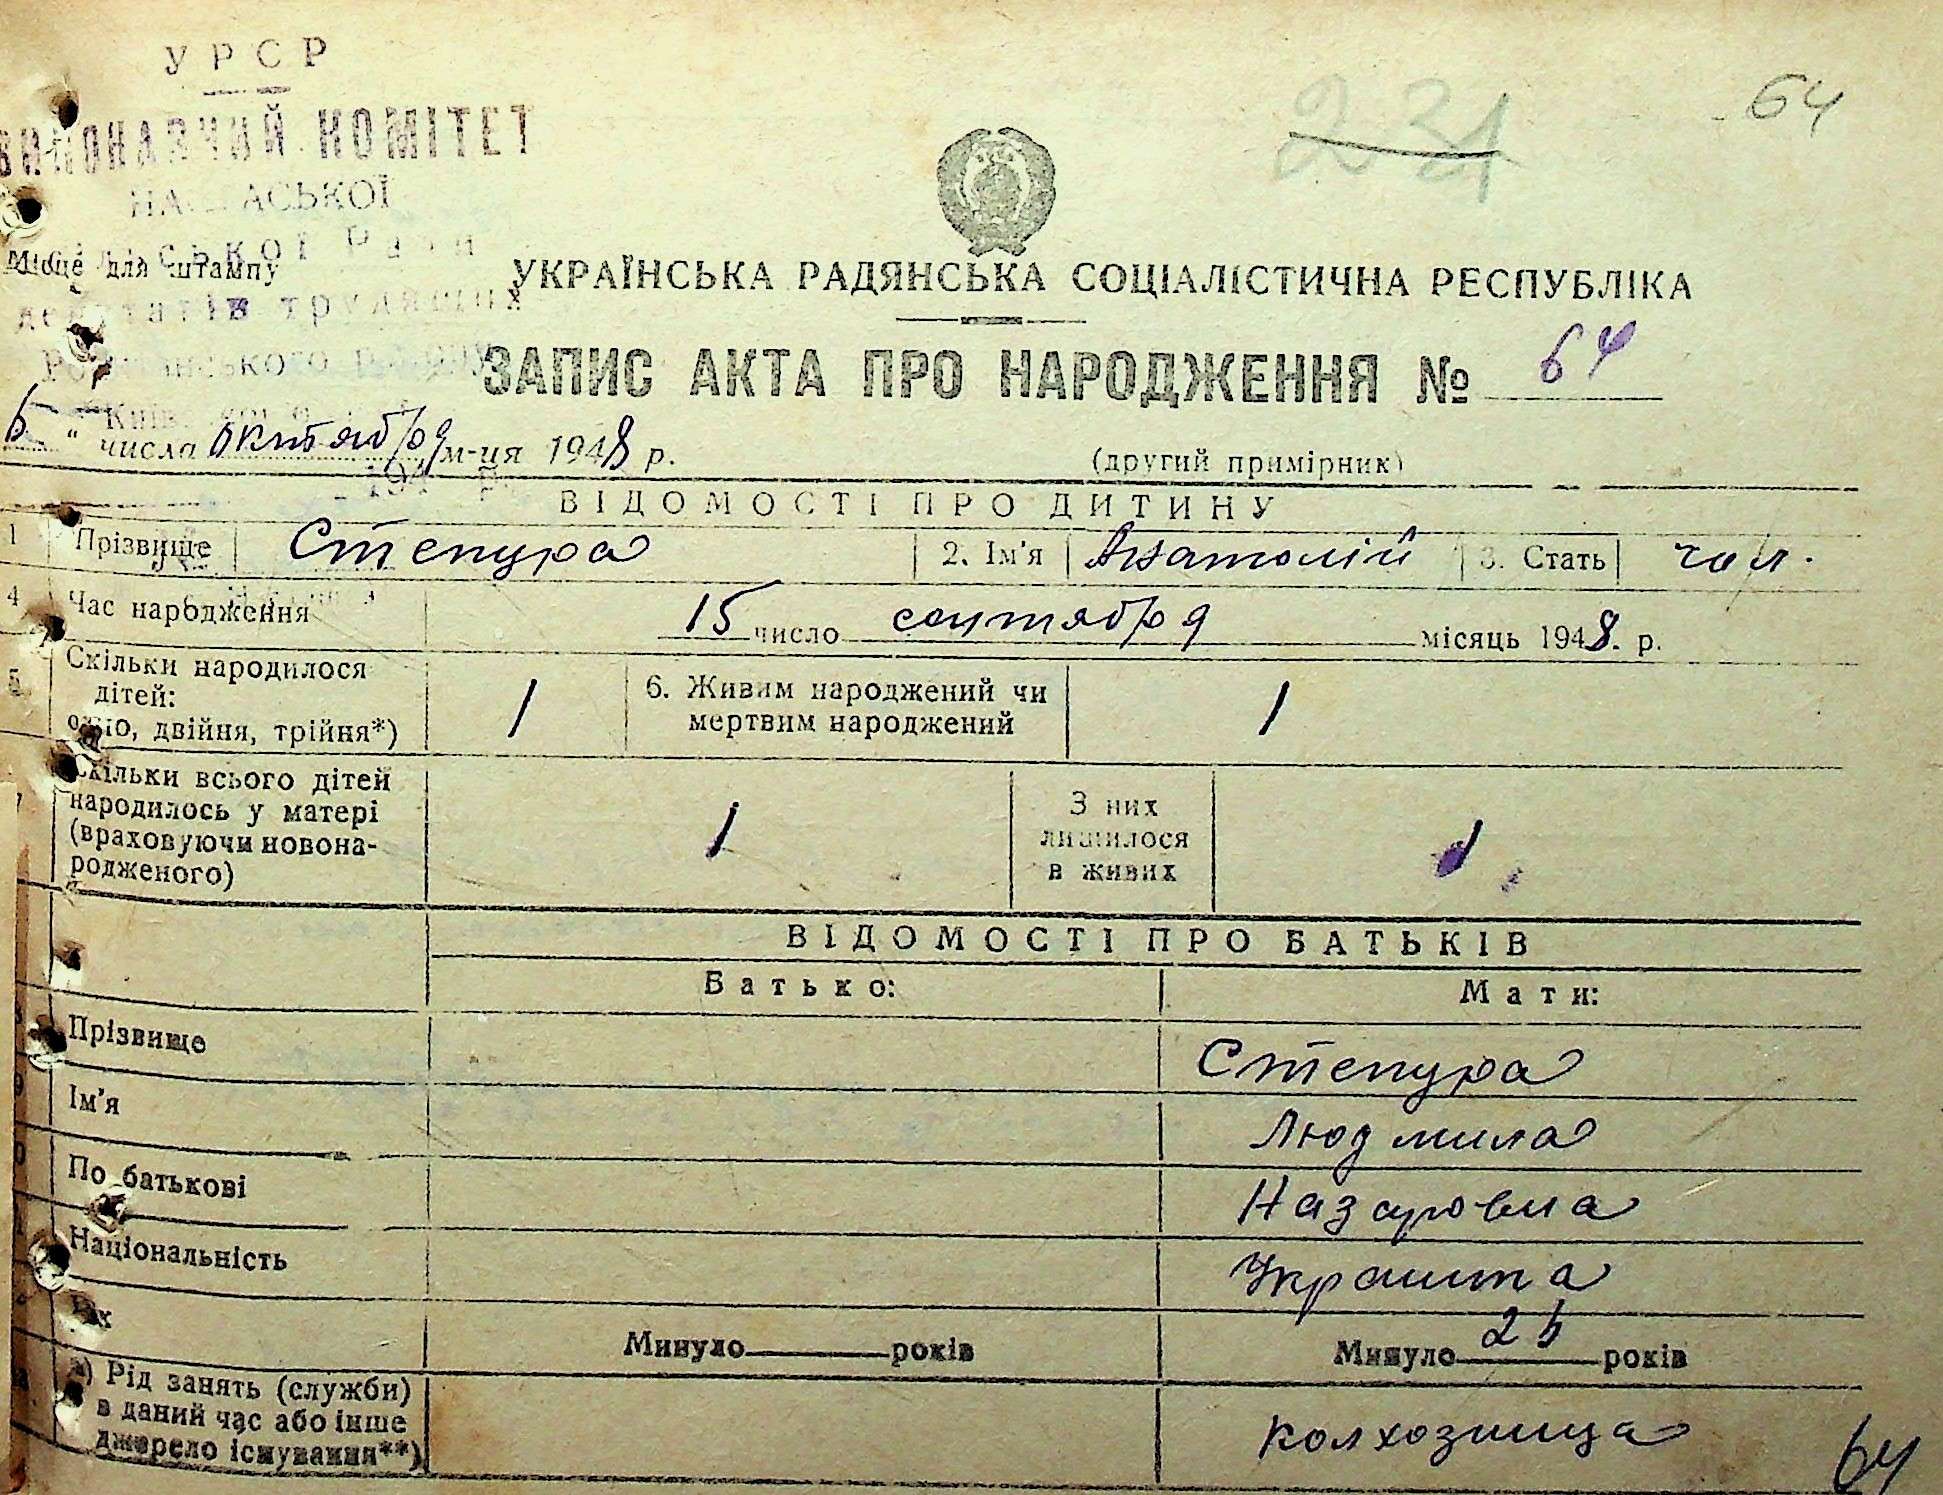 УРСР
ВИКОНАВЧИЙ КОМІТЕТ
сільської Ради
Місце для штампу
депутатів трудящих
231
64
УКРАЇНСЬКА РАДЯНСЬКА СОЦІАЛІСТИЧНА РЕСПУБЛІКА
ЗАПИС АКТА ПРО НАРОДЖЕННЯ № 64
" числа октября м-ця 1948 р.
(другий примірник)
194 р.
ВІДОМОСТІ ПРО ДИТИНУ
1 Прізвище Степура 2. Ім'я Анатолій 3. Стать чол.
4 Час народження 15 число сентября місяць 1948. р.
5 Скільки народилося дітей: одно, двійня, трійня*) 1 6. Живим народжений чи мертвим народжений 1
7 Скільки всього дітей народилось у матері (враховуючи новонародженого) 1 З них лишилося в живих 1
ВІДОМОСТІ ПРО БАТЬКІВ
Батько: Мати:
Прізвище Степура
9 Ім'я Людмила
0 По батькові Назаровна
1 Національність Украинка
Минуло років Минуло 25 років
а) Рід занять (служби) в даний час або інше джерело існування**) колхозница
64